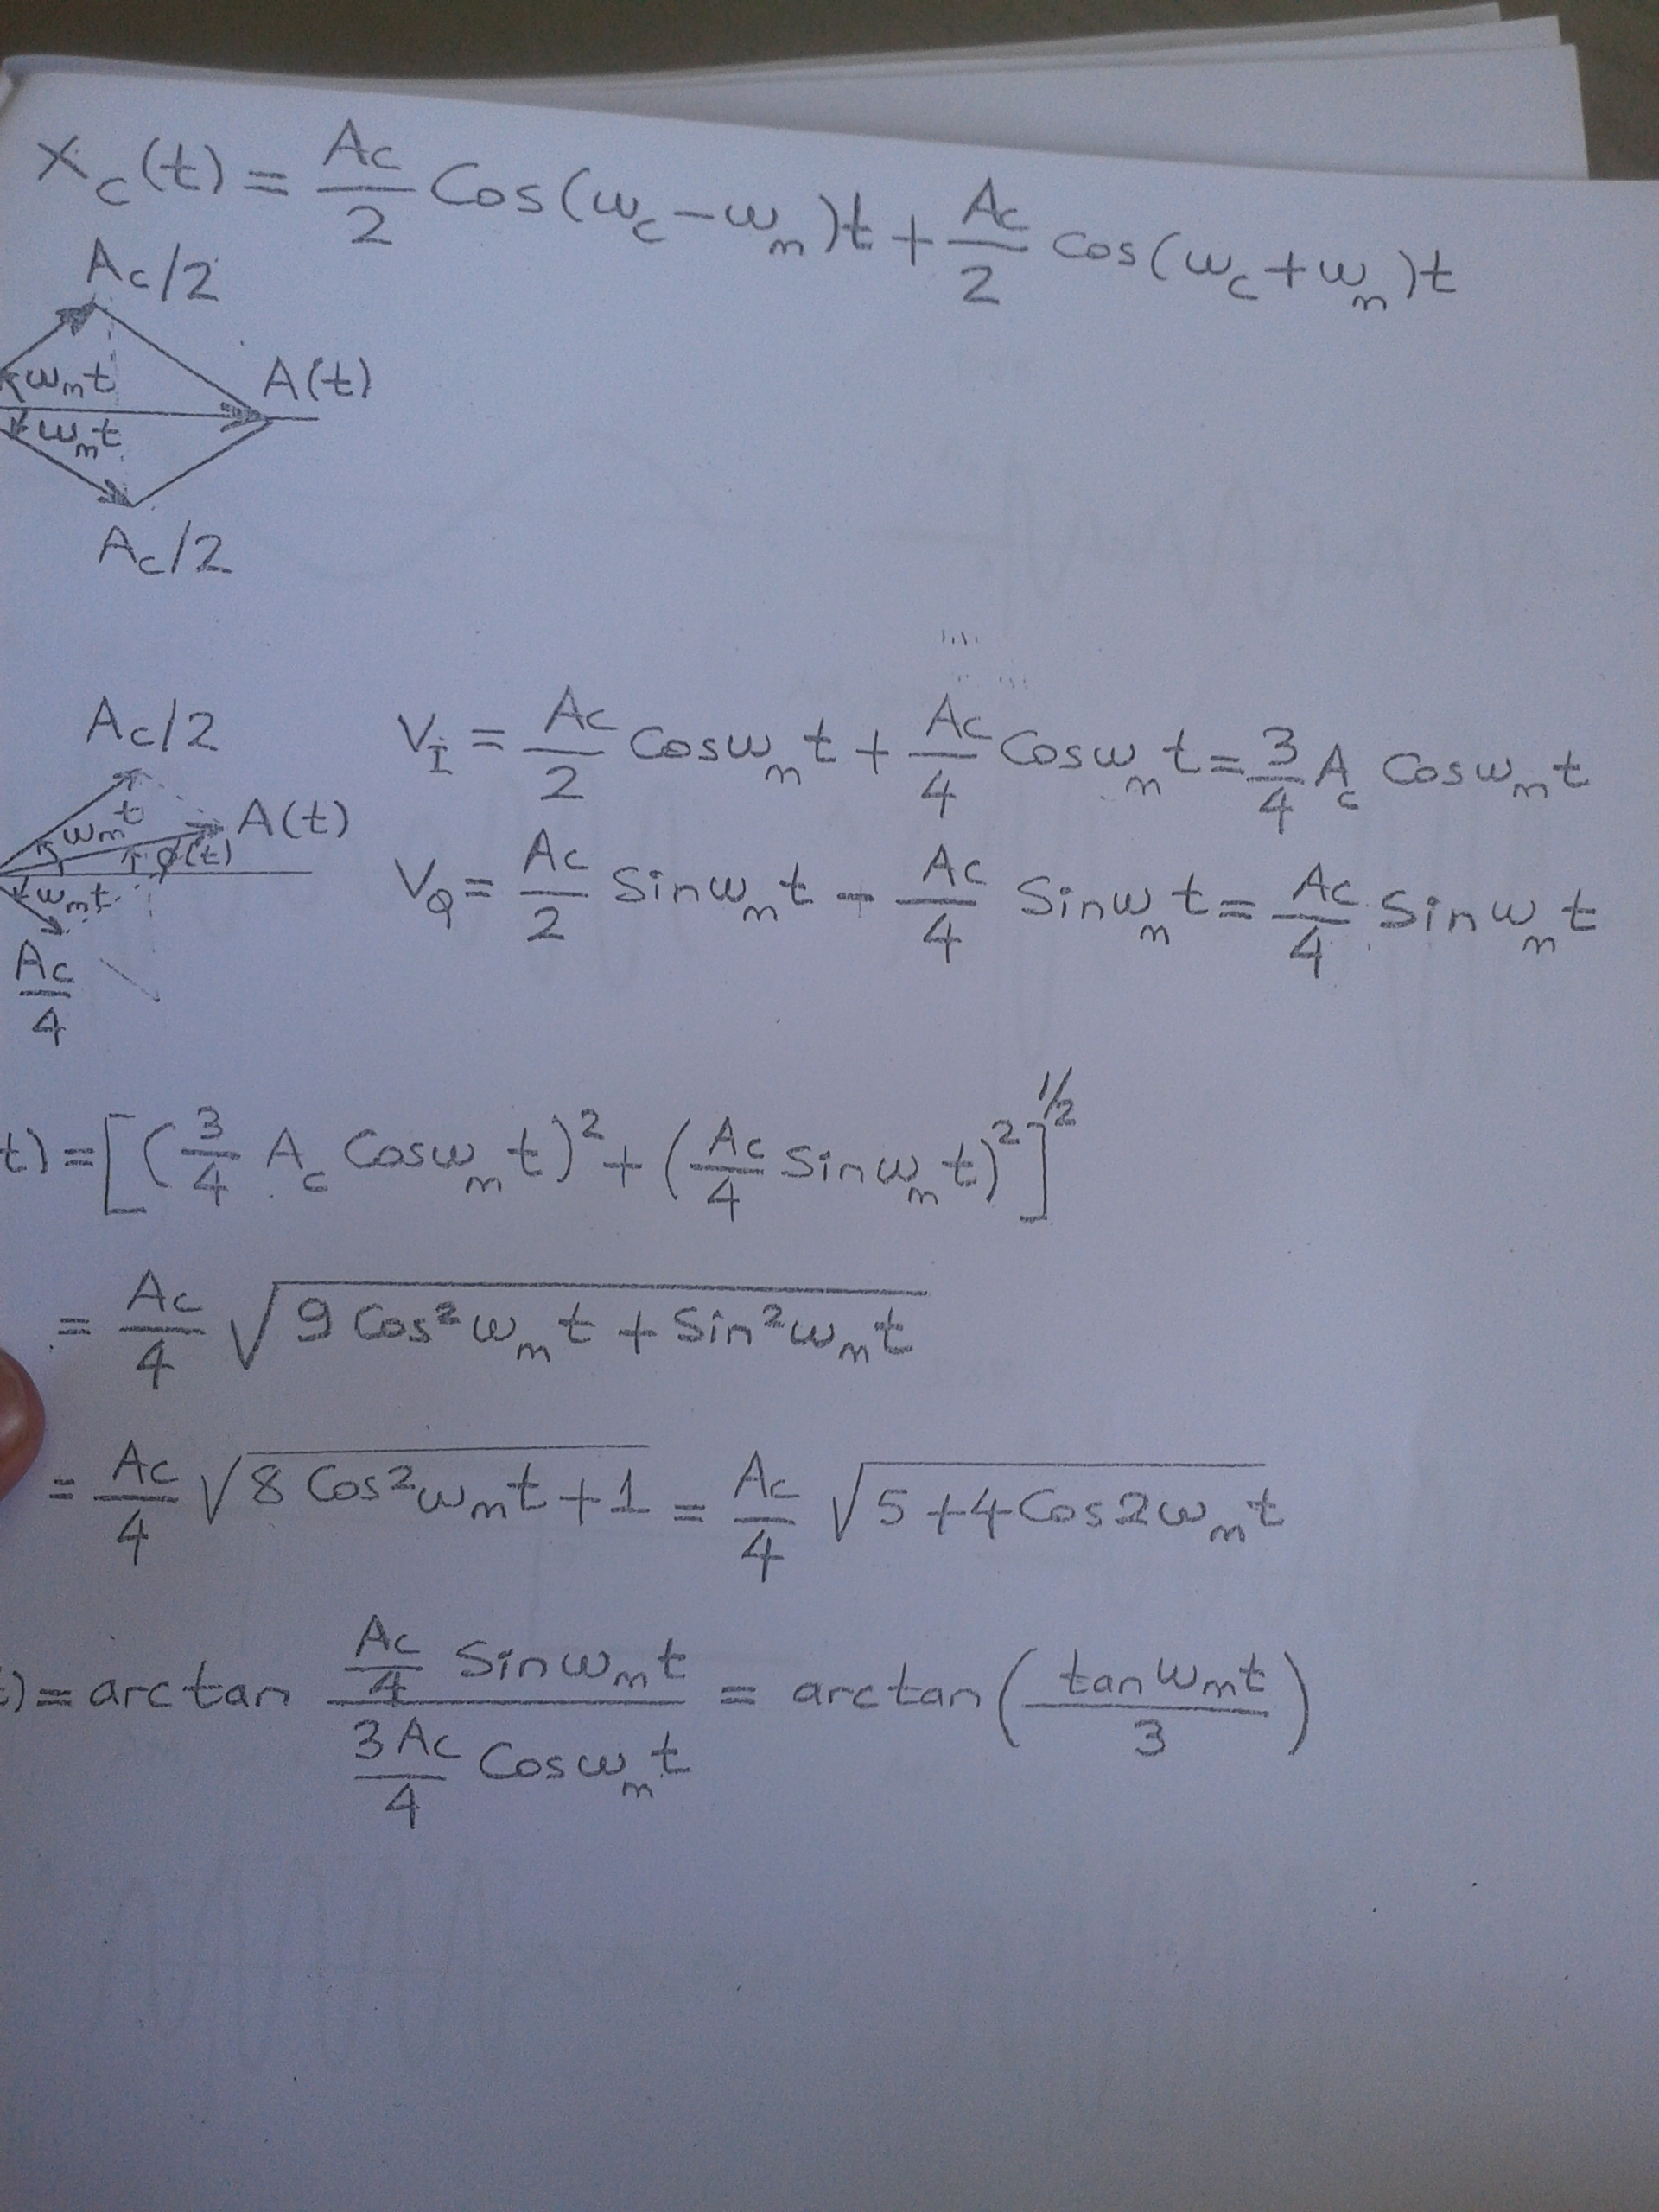 x_c(t) = Ac/2 Cos(ω_c - ω_m)t + Ac/2 cos(ω_c + ω_m)t
Ac/2
ω_m t
A(t)
ω_m t
Ac/2
Ac/2
ω_m t
A(t)
ϕ(t)
ω_m t
Ac/4
V_I = Ac/2 Cosω_m t + Ac/4 Cosω_m t = 3/4 A_c Cosω_m t
V_Q = Ac/2 Sinω_m t - Ac/4 Sinω_m t = Ac/4 Sinω_m t
t) = [(3/4 A_c Cosω_m t)² + (Ac/4 Sinω_m t)²]^1/2
= Ac/4 √(9 Cos²ω_m t + Sin²ω_m t)
= Ac/4 √(8 Cos²ω_m t + 1) = Ac/4 √(5 + 4 Cos2ω_m t)
) = arctan (Ac/4 Sinω_m t)/(3Ac/4 Cosω_m t) = arctan (tanω_m t/3)